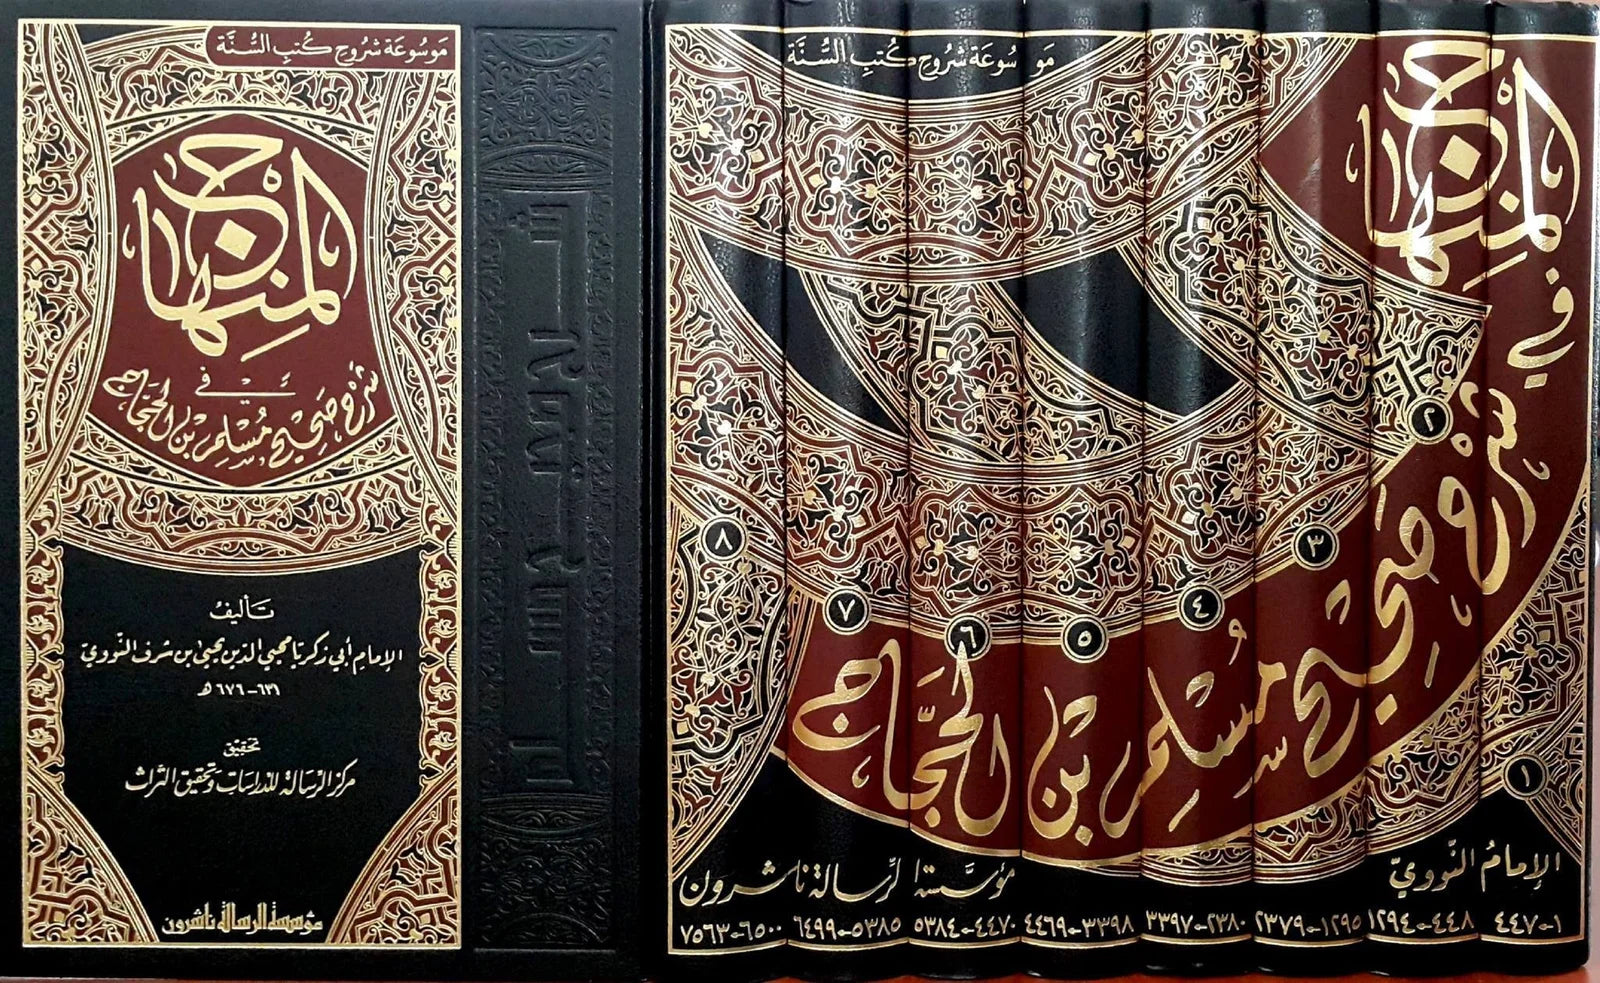 موسوعة شروح كتب السنة
المنهاج
في
شرح صحيح مسلم بن الحجاج
تأليف
الإمام أبي زكريا محيي الدين يحيى بن شرف النووي
٦٣١-٦٧٦ هـ
تحقيق
مركز الرسالة للدراسات وتحقيق التراث
مؤسسة الرسالة ناشرون
موسوعة شروح كتب السنة
المنهاج
في
شرح صحيح مسلم بن الحجاج
١ ٢ ٣ ٤ ٥ ٦ ٧ ٨
الإمام النووي
مؤسسة الرسالة ناشرون
١-٤٤٧ ٤٤٨-١٢٩٤ ١٢٩٥-٢٣٧٩ ٢٣٨٠-٣٣٩٧ ٣٣٩٨-٤٤٦٩ ٤٤٧٠-٥٣٨٤ ٥٣٨٥-٦٤٩٩ ٦٥٠٠-٧٥٦٣